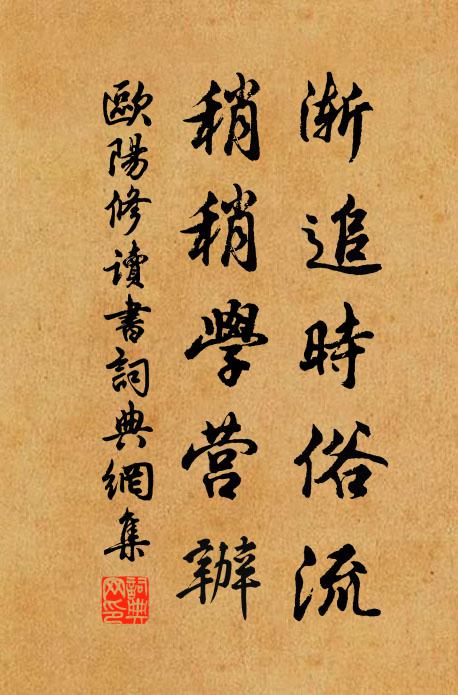 漸追時俗流
稍稍學营辦
歐陽修讀書詞典網集
詞典网印